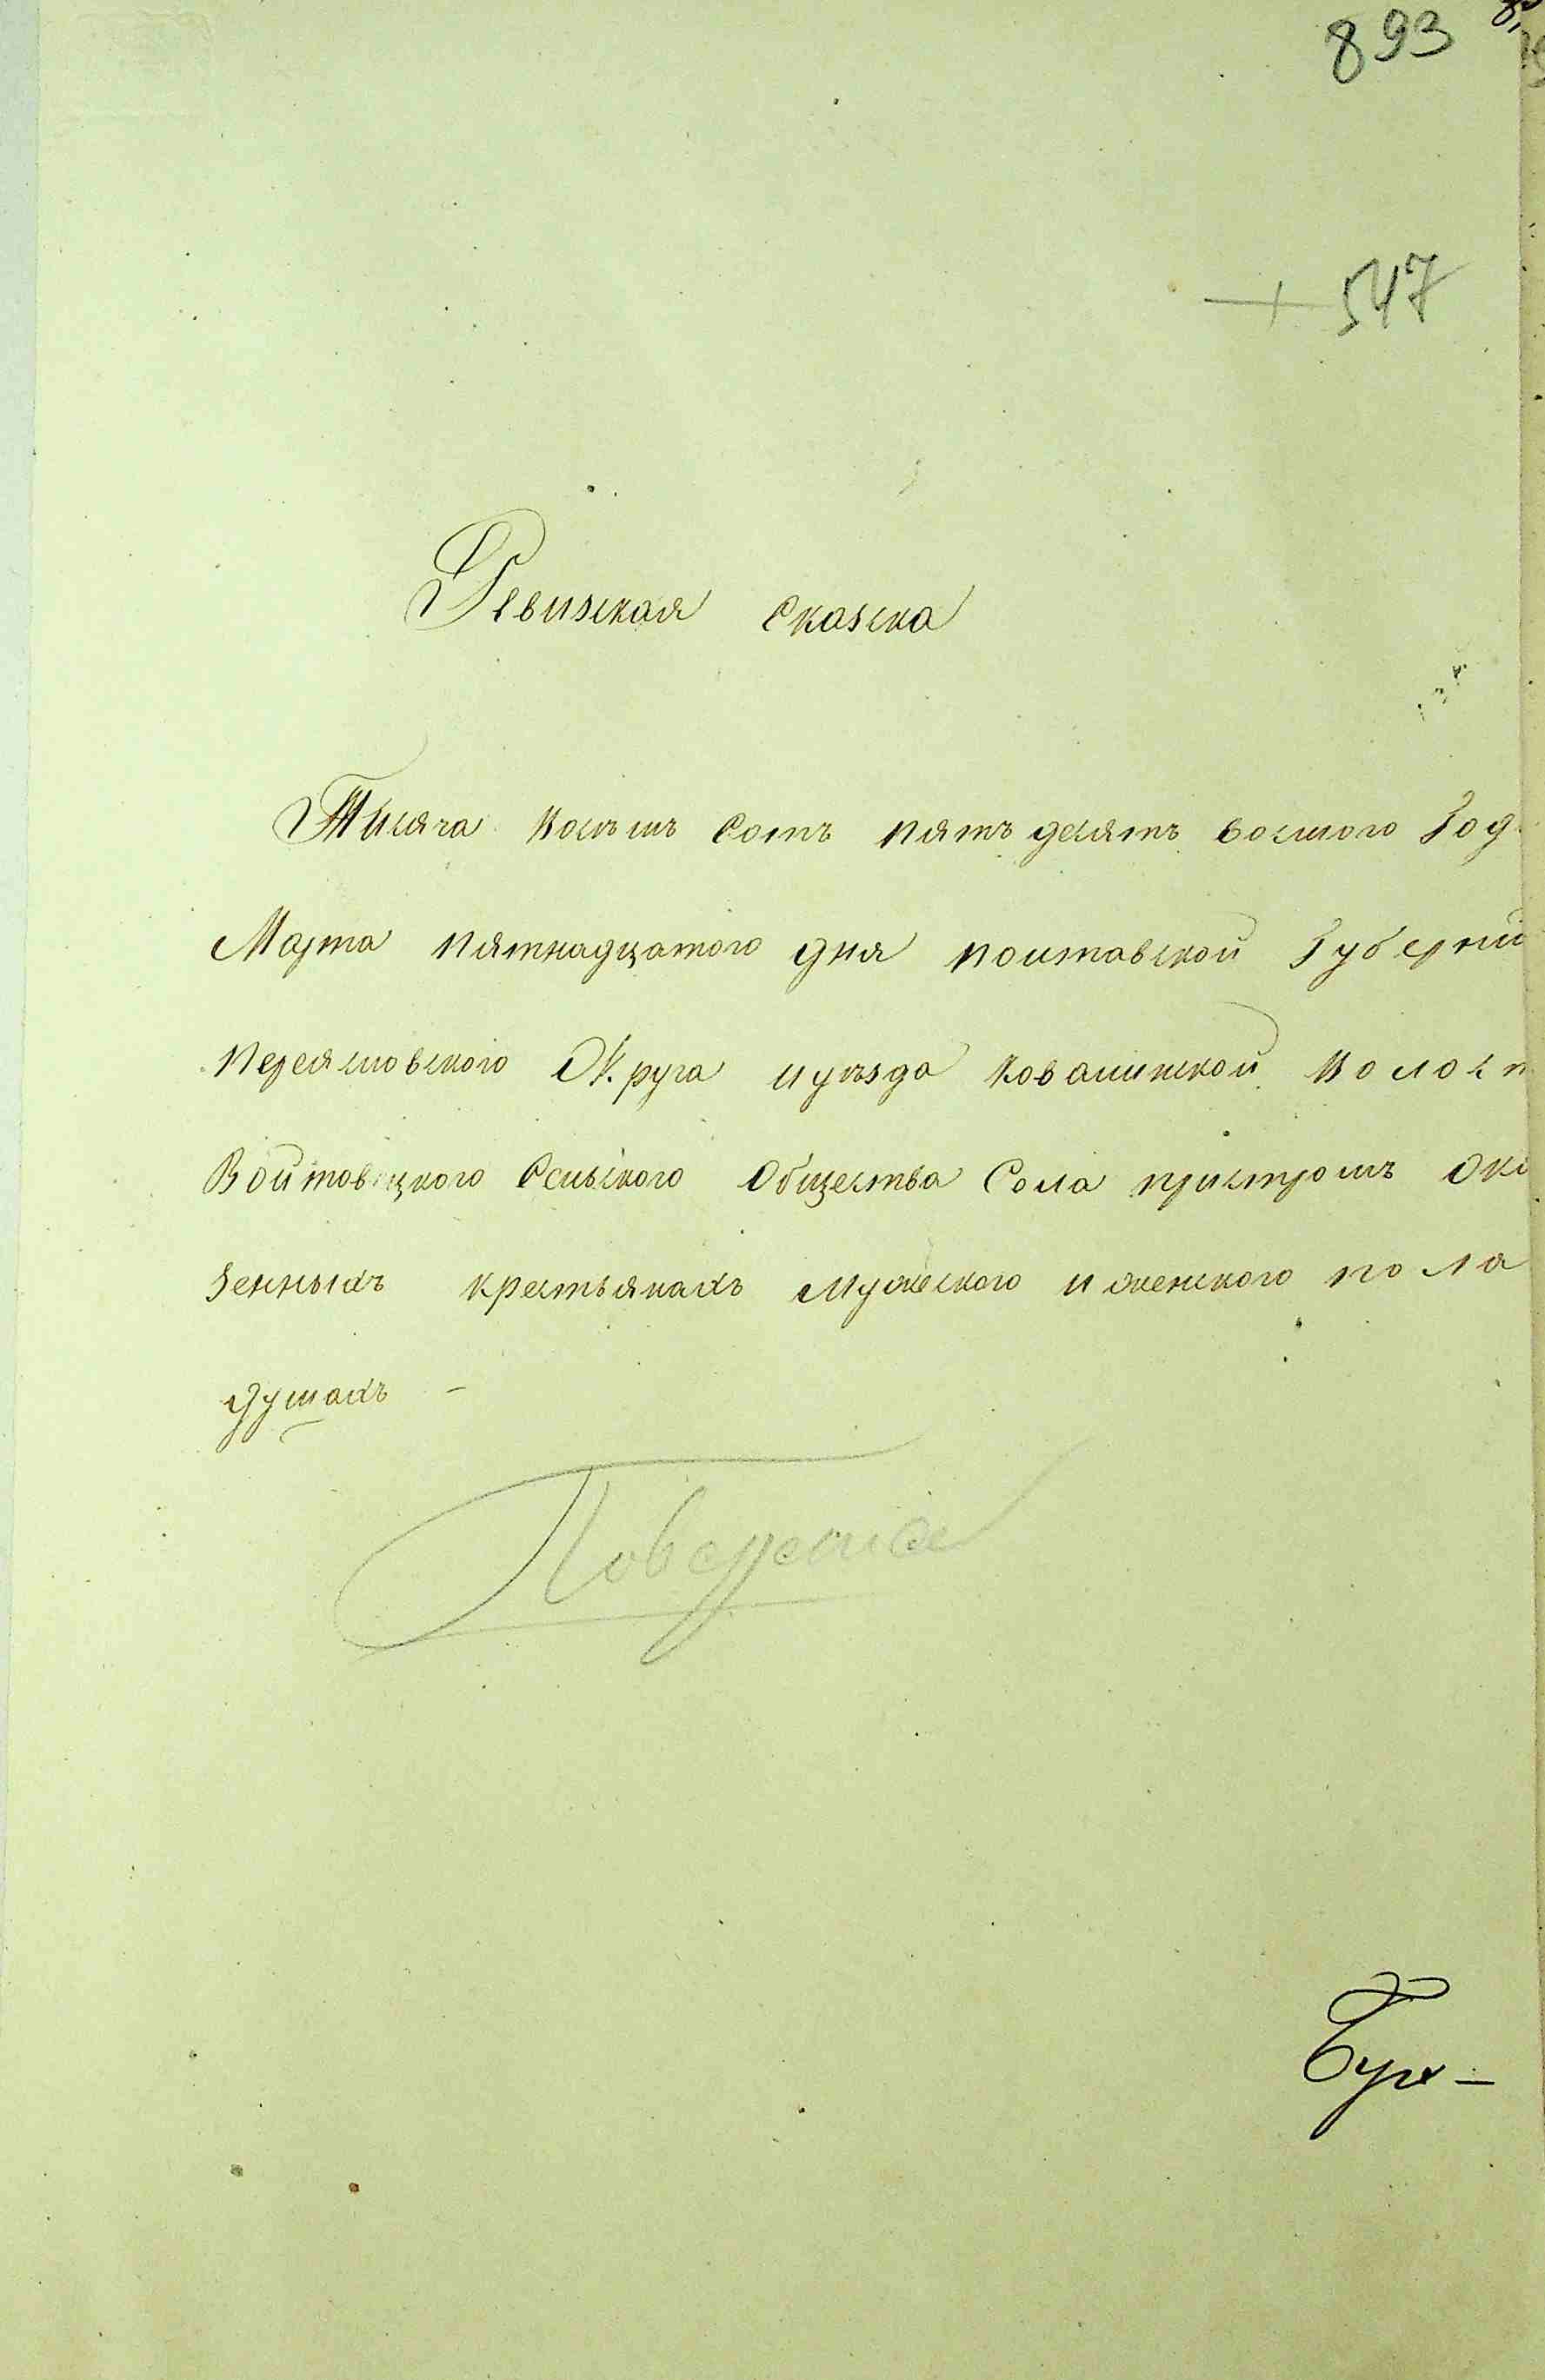 893
+ 547
Ревизская Сказка
Тысяча восемь Сотъ пятъ десятъ восмого Год
Марта пятнадцатого дня полтавской Губерніи
переяловского Округа иуъзда Ковалинской Волост
Войтовецкого Селького Общества Села пристромъ Ока
зенныхъ крестьянахъ мужеского и женского пола
душахъ -
Поверена